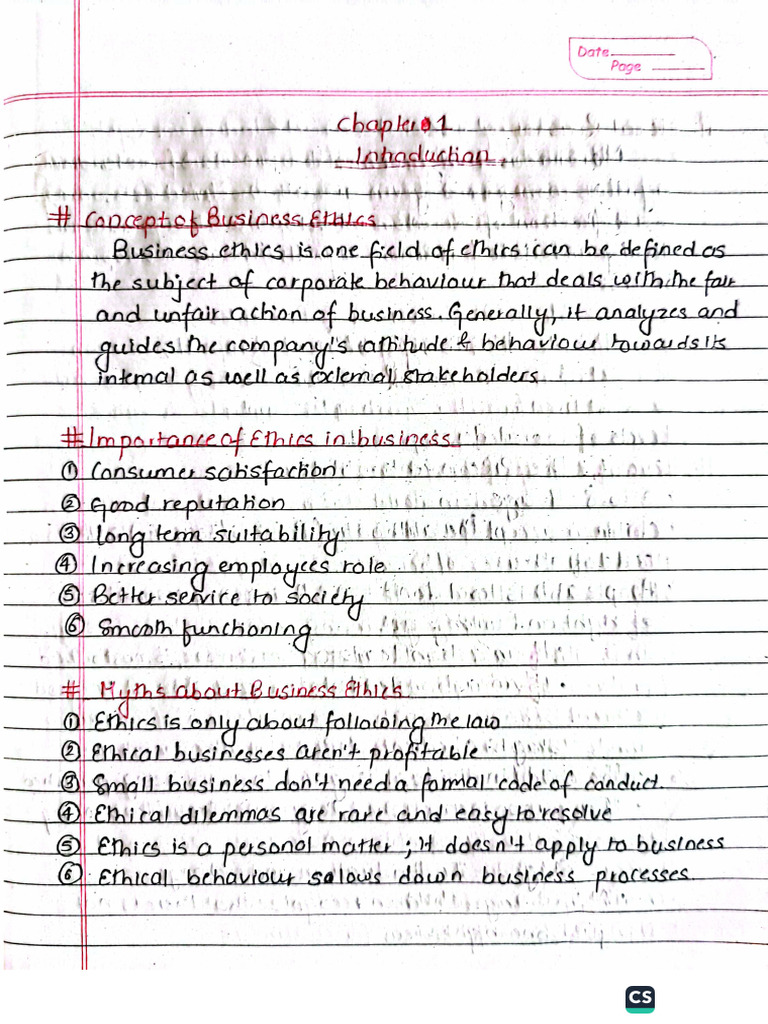 Date
Page
Chapter 1
Introduction
# Concept of Business Ethics
Business ethics is one field of ethics can be defined as
the subject of corporate behaviour that deals with the fair
and unfair action of business. Generally, it analyzes and
guides the company's attitude & behaviour towards its
internal as well as external stakeholders
# Importance of Ethics in business
① Consumer satisfaction
② Good reputation
③ long term suitability
④ Increasing employees role
⑤ Better service to society
⑥ Smooth functioning
# Myths about Business Ethics
① Ethics is only about following the law
② Ethical businesses aren't profitable
③ Small business don't need a formal code of conduct.
④ Ethical dilemmas are rare and easy to resolve
⑤ Ethics is a personal matter ; it doesn't apply to business
⑥ Ethical behaviour salows down business processes.
CS